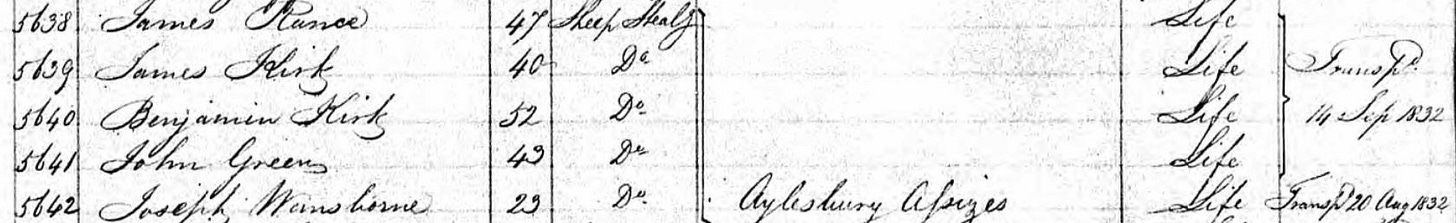 5638 James Rance 47 Sheep Stealg Life
5639 James Kirk 40 Do Life Transpd
5640 Benjamin Kirk 52 Do Life 14 Sep 1832
5641 John Green 43 Do Life
5642 Joseph Wansborne 23 Do Aylesbury Assizes Life Transpd 20 Aug 1832